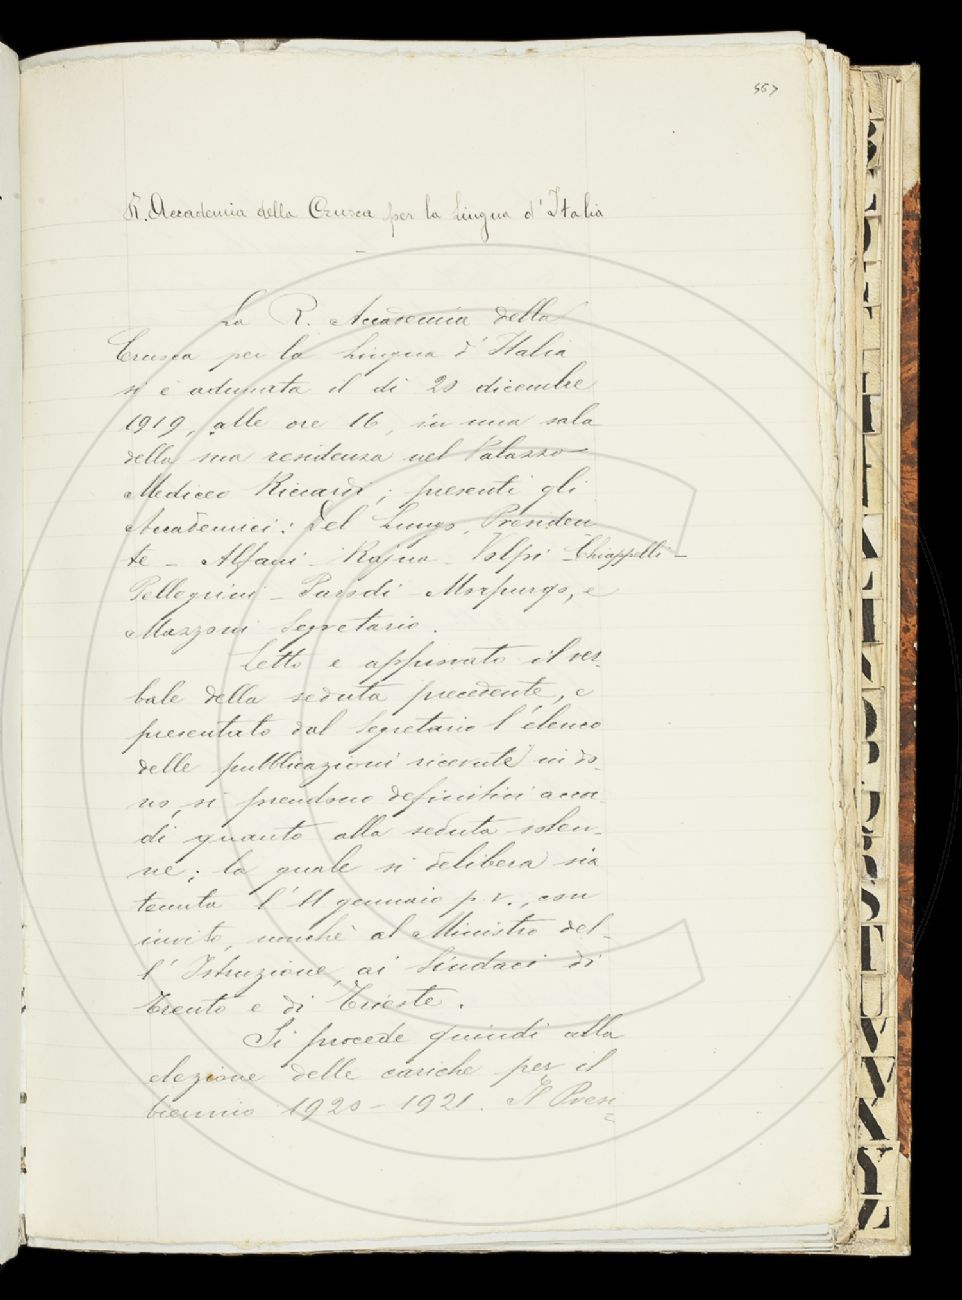 557
R. Accademia della Crusca per la Lingua d'Italia
La R. Accademia della
Crusca per la Lingua d'Italia
si è adunata il dì 20 dicembre
1919, alle ore 16, in una sala
della sua residenza nel Palazzo
Mediceo Riccardi; presenti gli
Accademici: Del Lungo, Presiden
te - Alfani - Rajna - Volpi - Chiappelli -
Pellegrini - Parodi - Morpurgo, e
Mazzoni Segretario.
Letto e approvato il ver-
bale della seduta precedente, e
presentato dal Segretario l'elenco
delle pubblicazioni ricevute in do-
no, si prendono definitivi accor-
di quanto alla seduta solen-
ne; la quale si delibera sia
tenuta l'11 gennaio p.v., con
invito, nonchè al Ministro del-
l'Istruzione, ai Sindaci di
Trento e di Trieste.
Si procede quindi alla
elezione delle cariche per il
biennio 1920-1921. Il Presi-